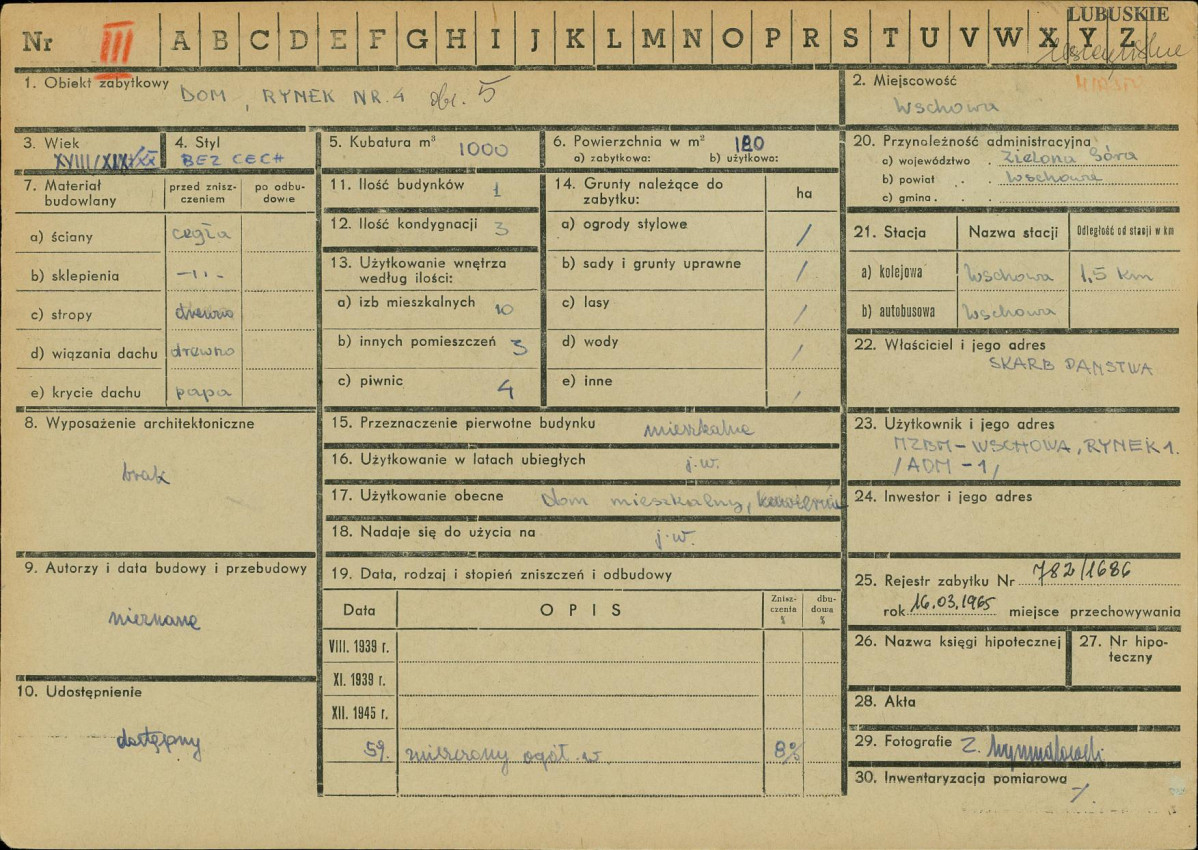 LUBUSKIE
Nr III A B C D E F G H I J K L M N O P R S T U V W X Y Z
1. Obiekt zabytkowy DOM, RYNEK NR. 4 obr. 5
2. Miejscowość
Wschowa
3. Wiek
XVIII/XIX/XX
4. Styl
BEZ CECH
5. Kubatura m³ 1000
6. Powierzchnia w m² 120
a) zabytkowa: b) użytkowa:
7. Materiał budowlany
przed znisz-
czeniem
po odbu-
dowie
a) ściany cegła
b) sklepienia –11–
c) stropy drewno
d) wiązania dachu drewno
e) krycie dachu papa
8. Wyposażenie architektoniczne
brak
9. Autorzy i data budowy i przebudowy
nieznane
10. Udostępnienie
dostępny
11. Ilość budynków 1
12. Ilość kondygnacji 3
13. Użytkowanie wnętrza
według ilości:
a) izb mieszkalnych 10
b) innych pomieszczeń 3
c) piwnic 4
14. Grunty należące do
zabytku:
ha
a) ogrody stylowe /
b) sady i grunty uprawne /
c) lasy /
d) wody /
e) inne /
15. Przeznaczenie pierwotne budynku mieszkalne
16. Użytkowanie w latach ubiegłych j.w.
17. Użytkowanie obecne dom mieszkalny,
18. Nadaje się do użycia na j.w.
19. Data, rodzaj i stopień zniszczeń i odbudowy
Data OPIS
Znisz-
czenia
%
dbu-
dowa
%
VIII. 1939 r.
XI. 1939 r.
XII. 1945 r.
59. ogół. 8%
20. Przynależność administracyjna
a) województwo . Zielona Góra
b) powiat . . Wschowa
c) gmina . .
21. Stacja Nazwa stacji Odległość od stacji w km
a) kolejowa Wschowa 1,5 km
b) autobusowa Wschowa
22. Właściciel i jego adres
SKARB PAŃSTWA
23. Użytkownik i jego adres
MZBM – WSCHOWA, RYNEK 1.
/ADM – 1/
24. Inwestor i jego adres
25. Rejestr zabytku Nr 782/1686
rok 16.03.1965 miejsce przechowywania
26. Nazwa księgi hipotecznej
27. Nr hipo-
teczny
28. Akta
29. Fotografie Z.
30. Inwentaryzacja pomiarowa